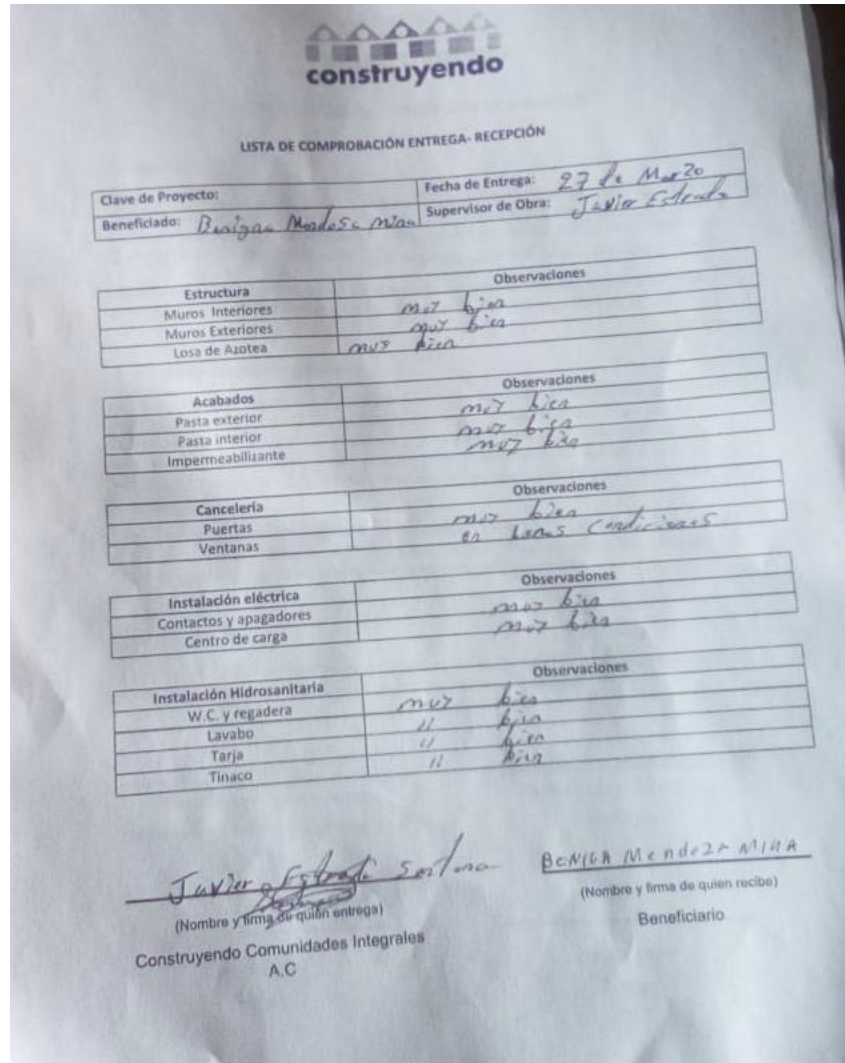 construyendo
LISTA DE COMPROBACIÓN ENTREGA- RECEPCIÓN
Clave de Proyecto: Fecha de Entrega: 27 de Marzo
Beneficiado: Mendosa Mina Supervisor de Obra: Javier Estrada
Estructura Observaciones
Muros Interiores muy bien
Muros Exteriores muy bien
Losa de Azotea muy bien
Acabados Observaciones
Pasta exterior muy bien
Pasta interior muy bien
Impermeabilizante muy bien
Cancelería Observaciones
Puertas muy bien
Ventanas en condiciones
Instalación eléctrica Observaciones
Contactos y apagadores muy bien
Centro de carga muy bien
Instalación Hidrosanitaria Observaciones
W.C. y regadera muy bien
Lavabo " bien
Tarja " bien
Tinaco " bien
Javier Estrada BENIGA Mendoza MINA
(Nombre y firma de quién entrega) (Nombre y firma de quien recibe)
Construyendo Comunidades Integrales Beneficiario
A.C